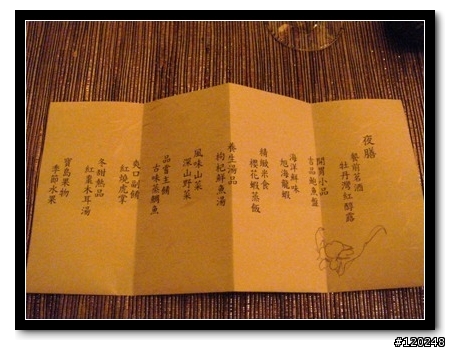 夜膳
餐前茗酒
牡丹灣紅醇露
開胃小品
吉品鮑魚盤
海洋鮮味
旭海龍蝦
精緻米食
櫻花蝦蒸飯
養生湯品
枸杞鮮魚湯
風味山菜
深山野菜
品嘗主鋪
古味蒸鯛魚
爽口副鋪
紅燒虎掌
冬甜熱品
紅棗木耳湯
寶島果物
季節水果
#120248